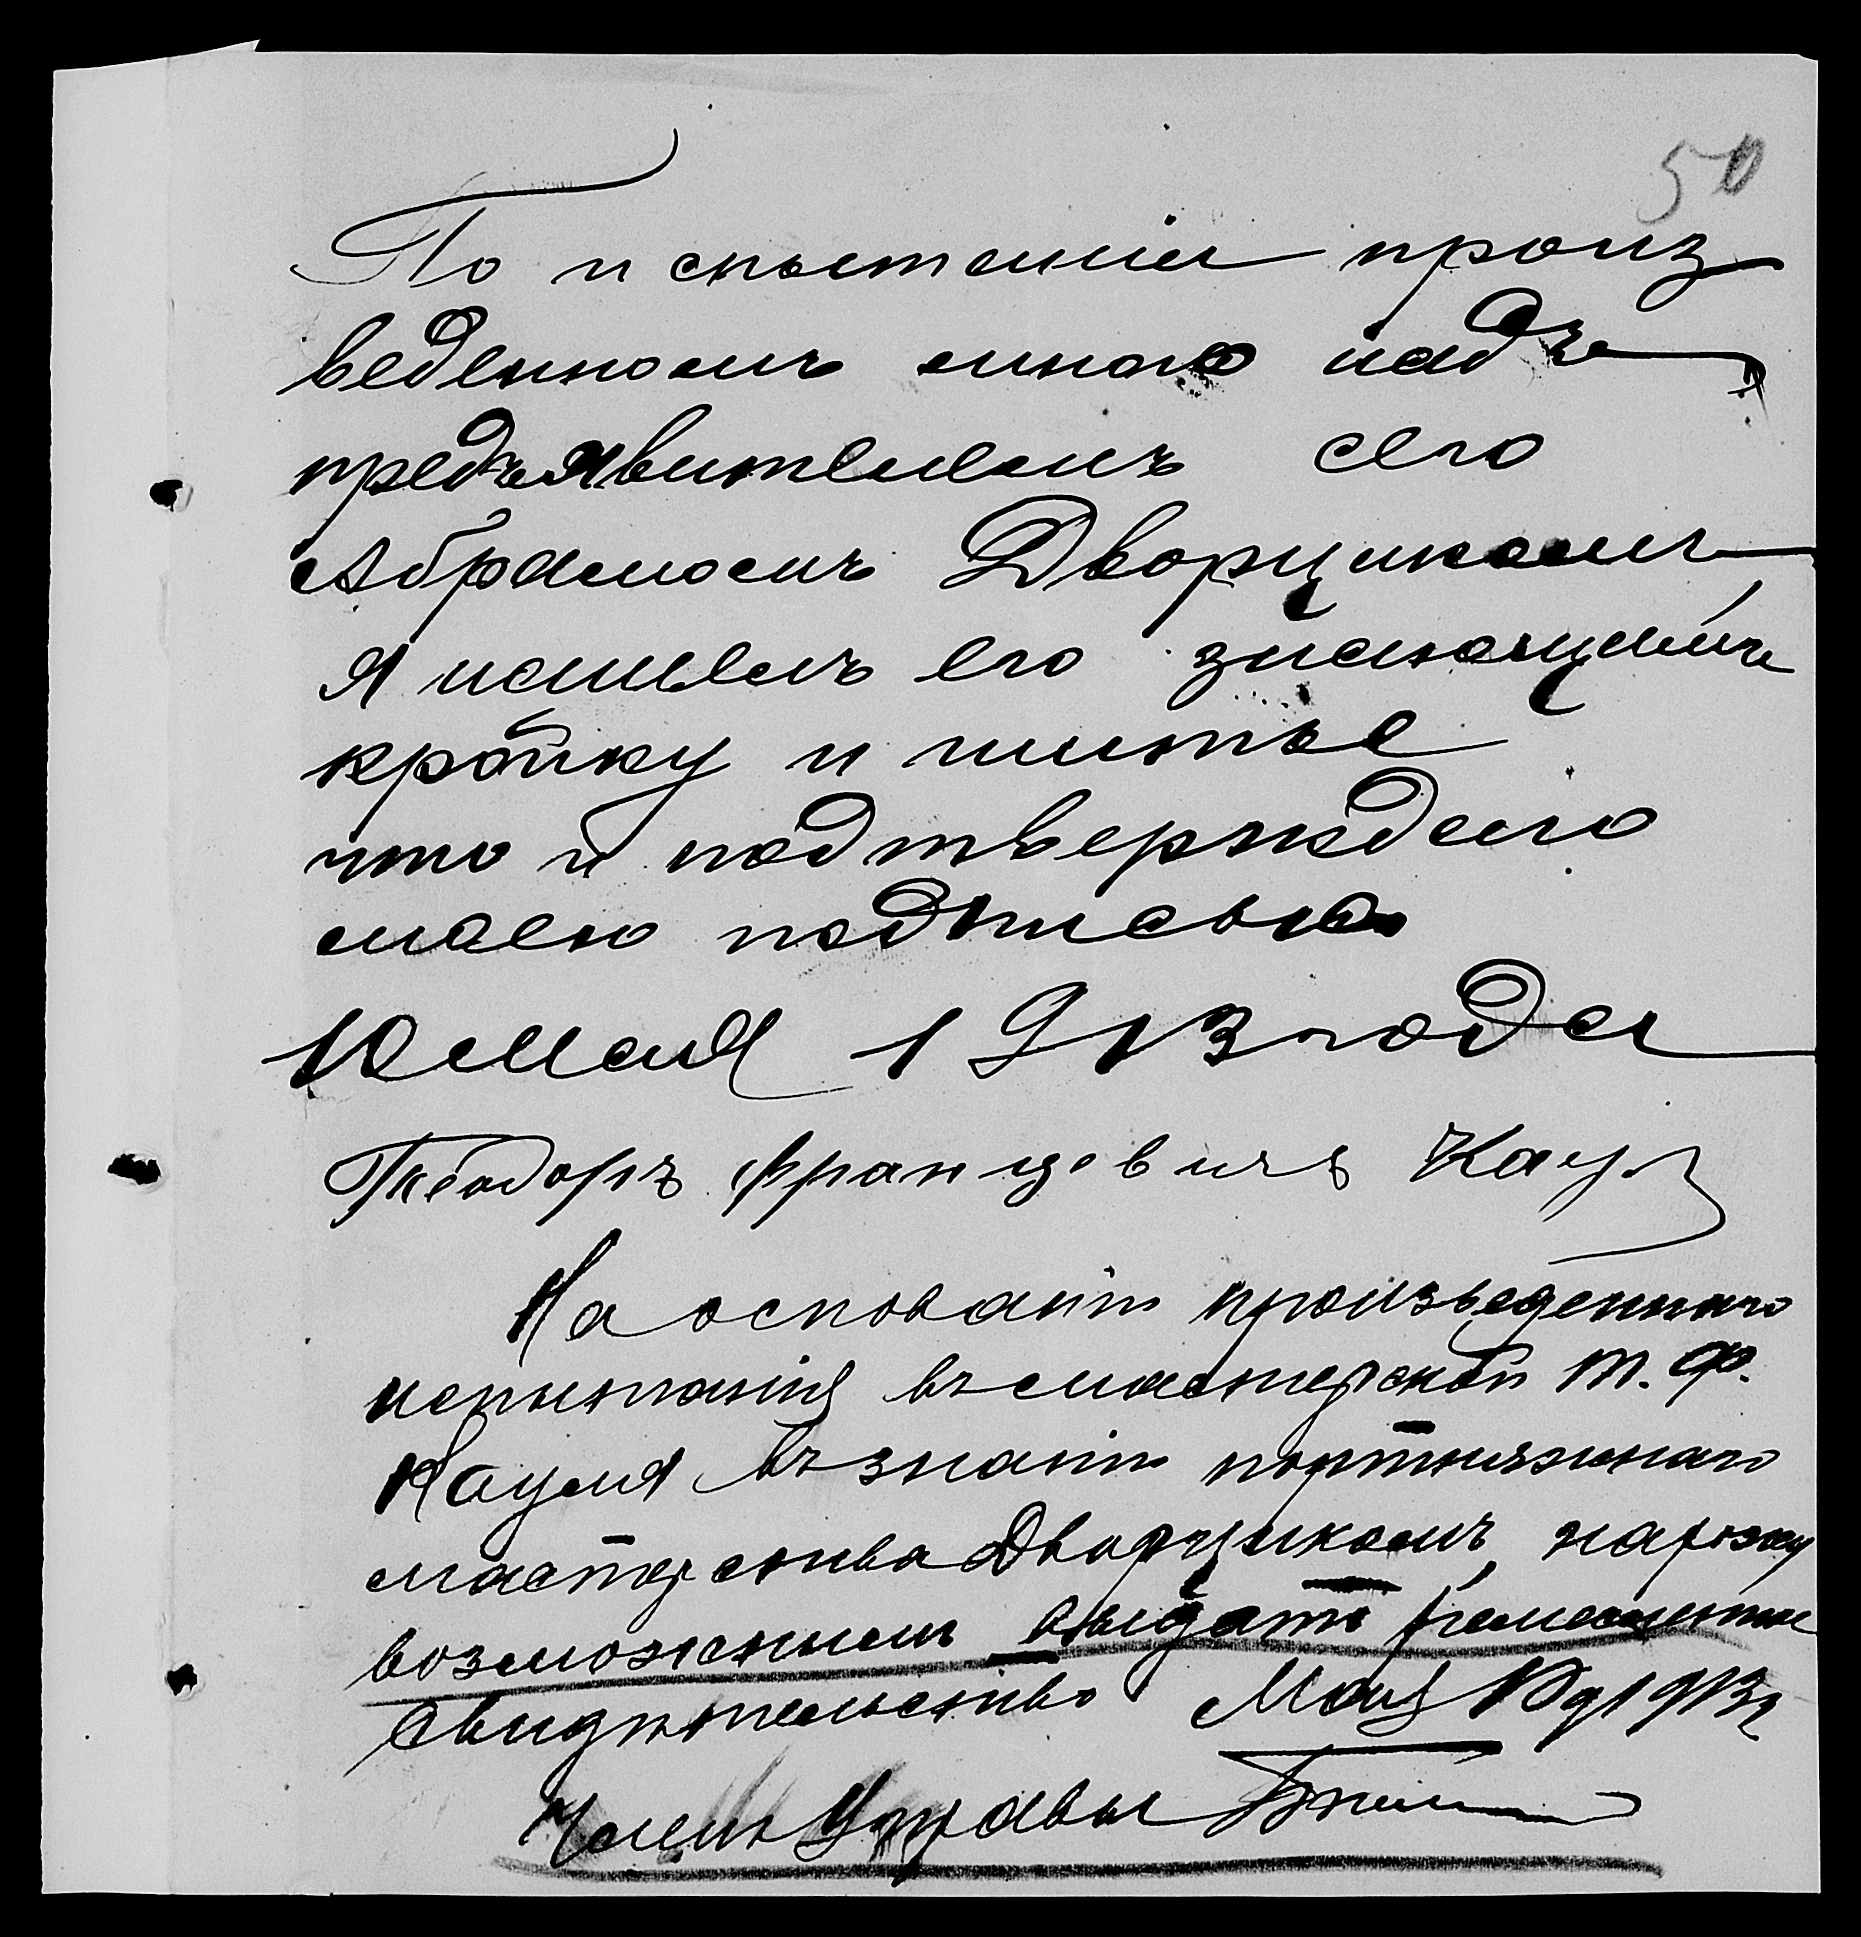 50
По испытанiи произ
веденномъ мною надъ
предъявителемъ сего
Абрамомъ Дворцикомъ
я нашелъ его знающимъ
кройку и шитье
что и подтверждаю
моею подписью
10 мая 1913 года
Теодоръ Францевичъ Каул
На основанiи произведеннаго
испытанiя въ мастерской Т. Ф.
Кауля въ знанiи портняжнаго
мастерства Дворцикомъ, нахожу
возможнымъ выдать ремесленное
свидѣтельство Мая 10 д 1913 г
Членъ Управы